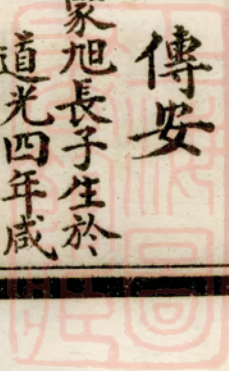 傳安
家旭長子生於
道光四年咸